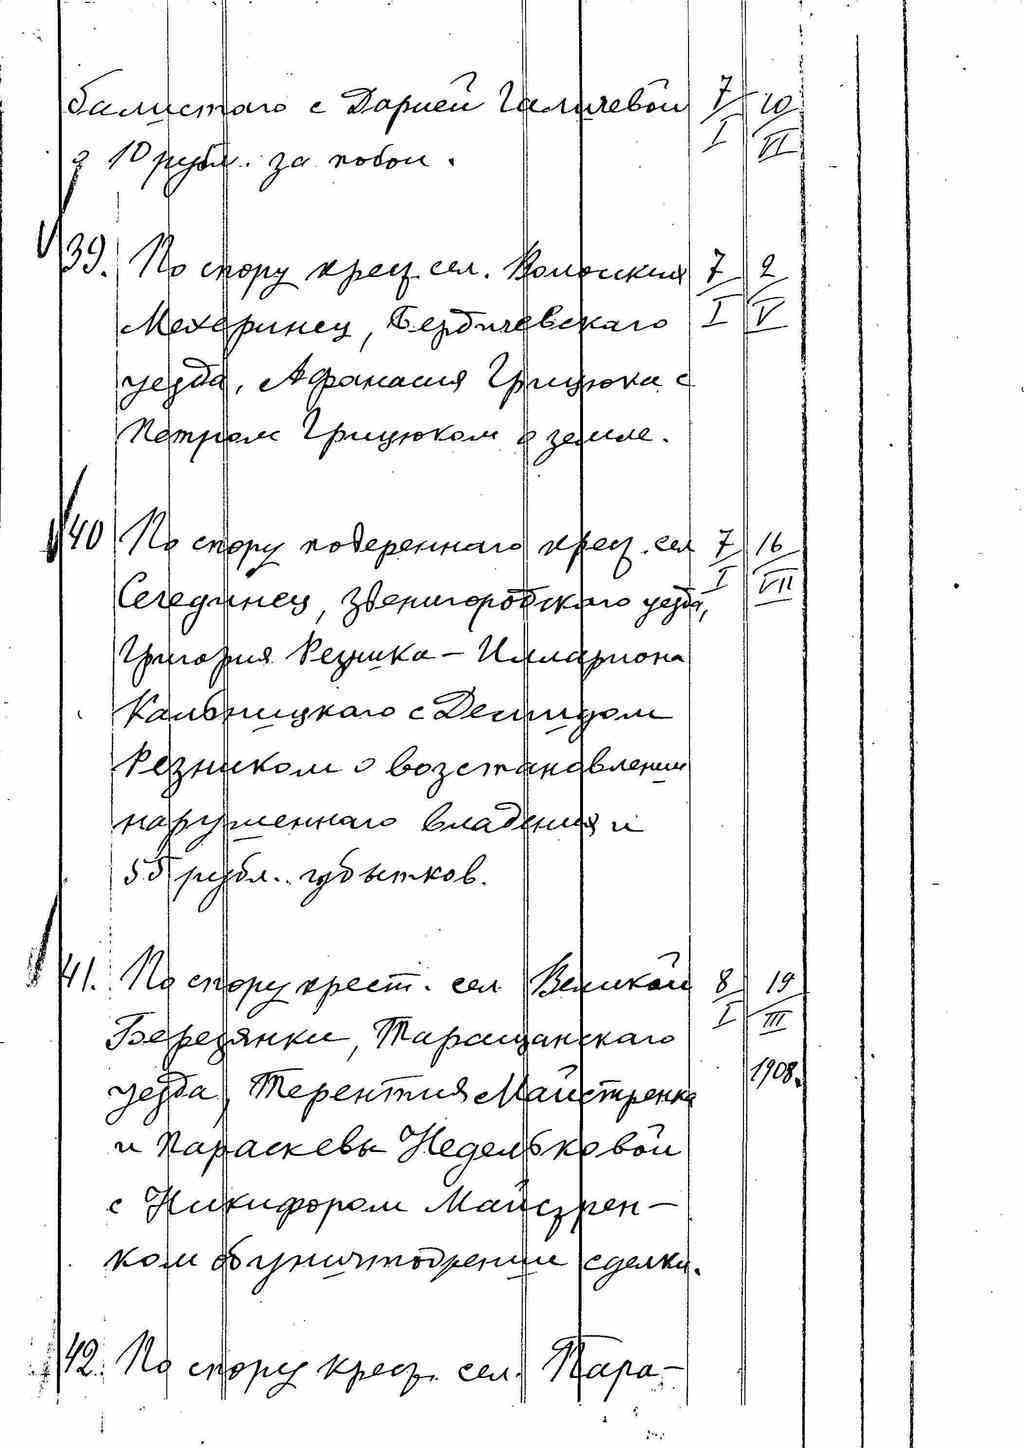 балистаго с Дарией Галичевой 7/I 10/VI
о 10 рубл. за побои.
39. По спору крест. сел. Волоския 7/I 2/V
Мехеринец, Бердичевскаго
уезда, Афанасия Грицюка с
Петром Грицюком о земле.
40 По спору поверенного крест. сел 7/I 16/VII
Сегединец, Звенигородского уезда,
Григория Резника – Иллариона
Кальницкаго с Демидом
Резником о возстановлении
нарушеннаго владения и
55 рубл. убытков.
41. По спору крест. сел Великой 8/I 19/III
Березянки, Таращанскаго 1908.
уезда, Терентия Майстренка
и Параскевы Недельковой
с Никифором Майстрен-
ком об уничтожении сделки.
42. По спору крест. сел. Пара-